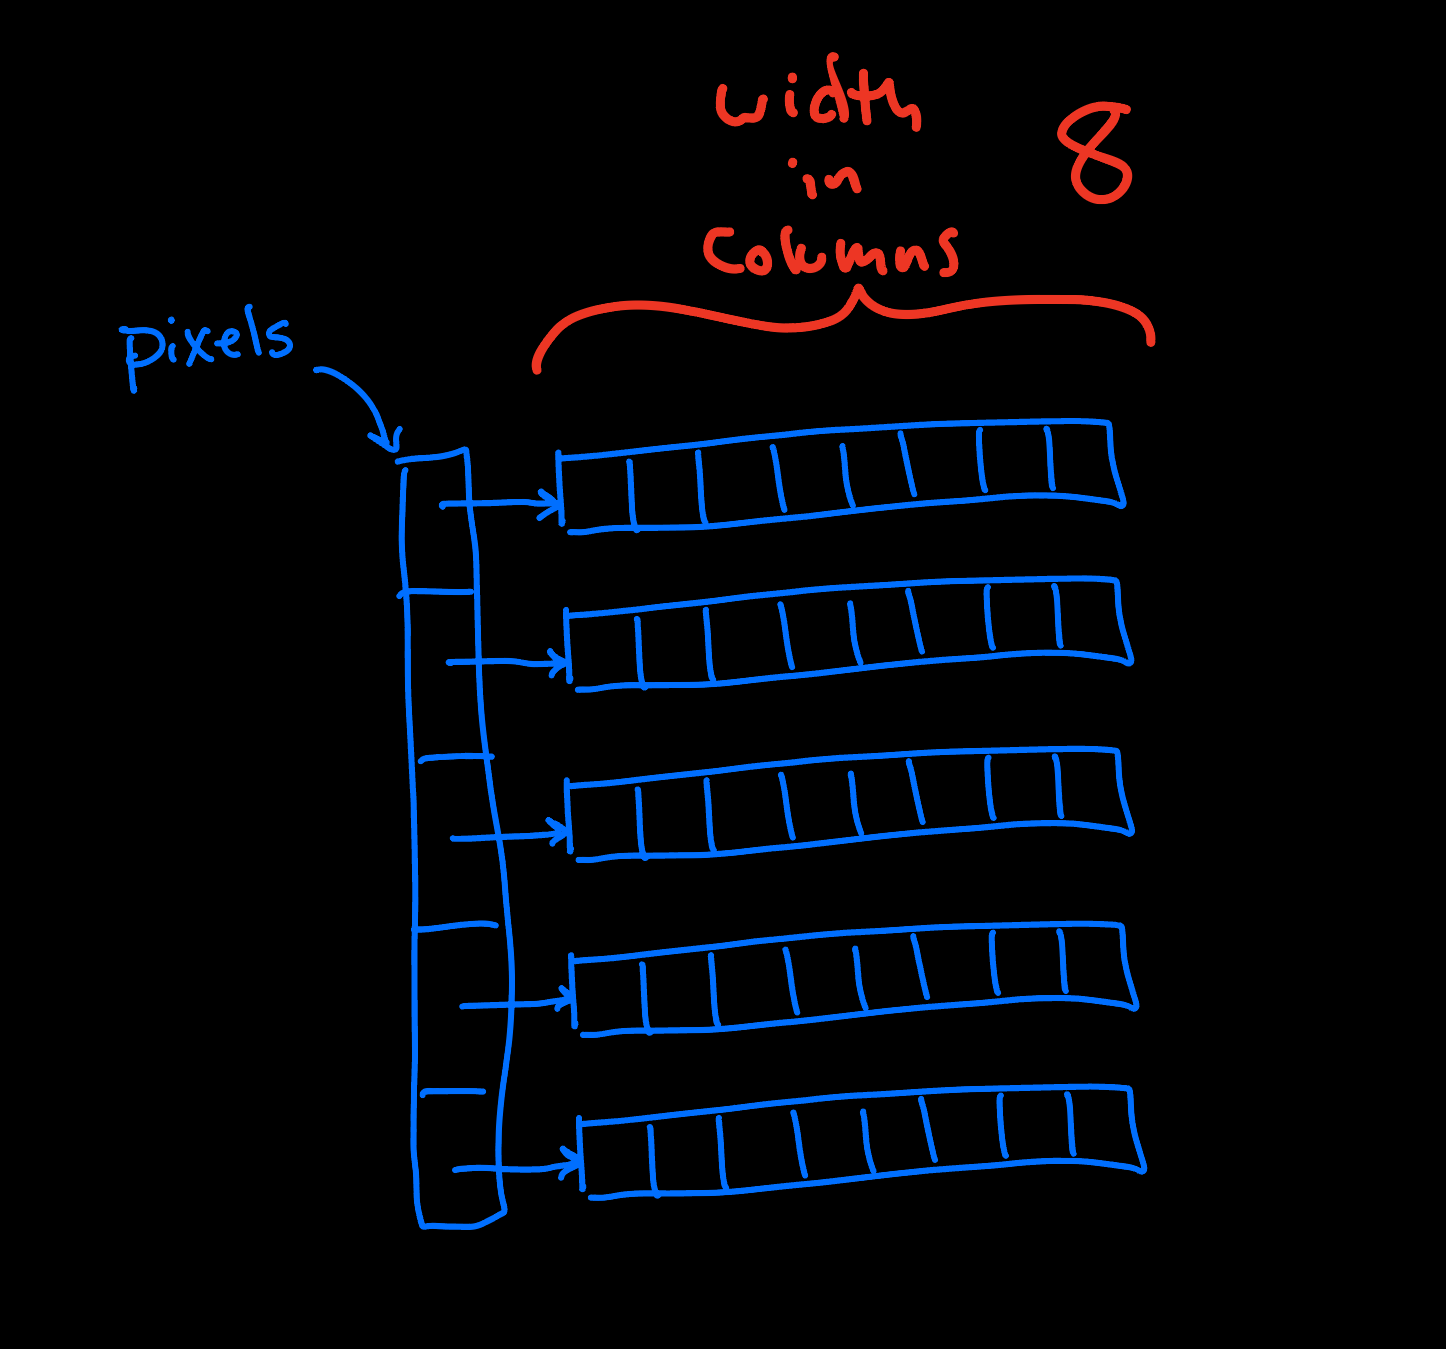 width
in
columns
8
pixels